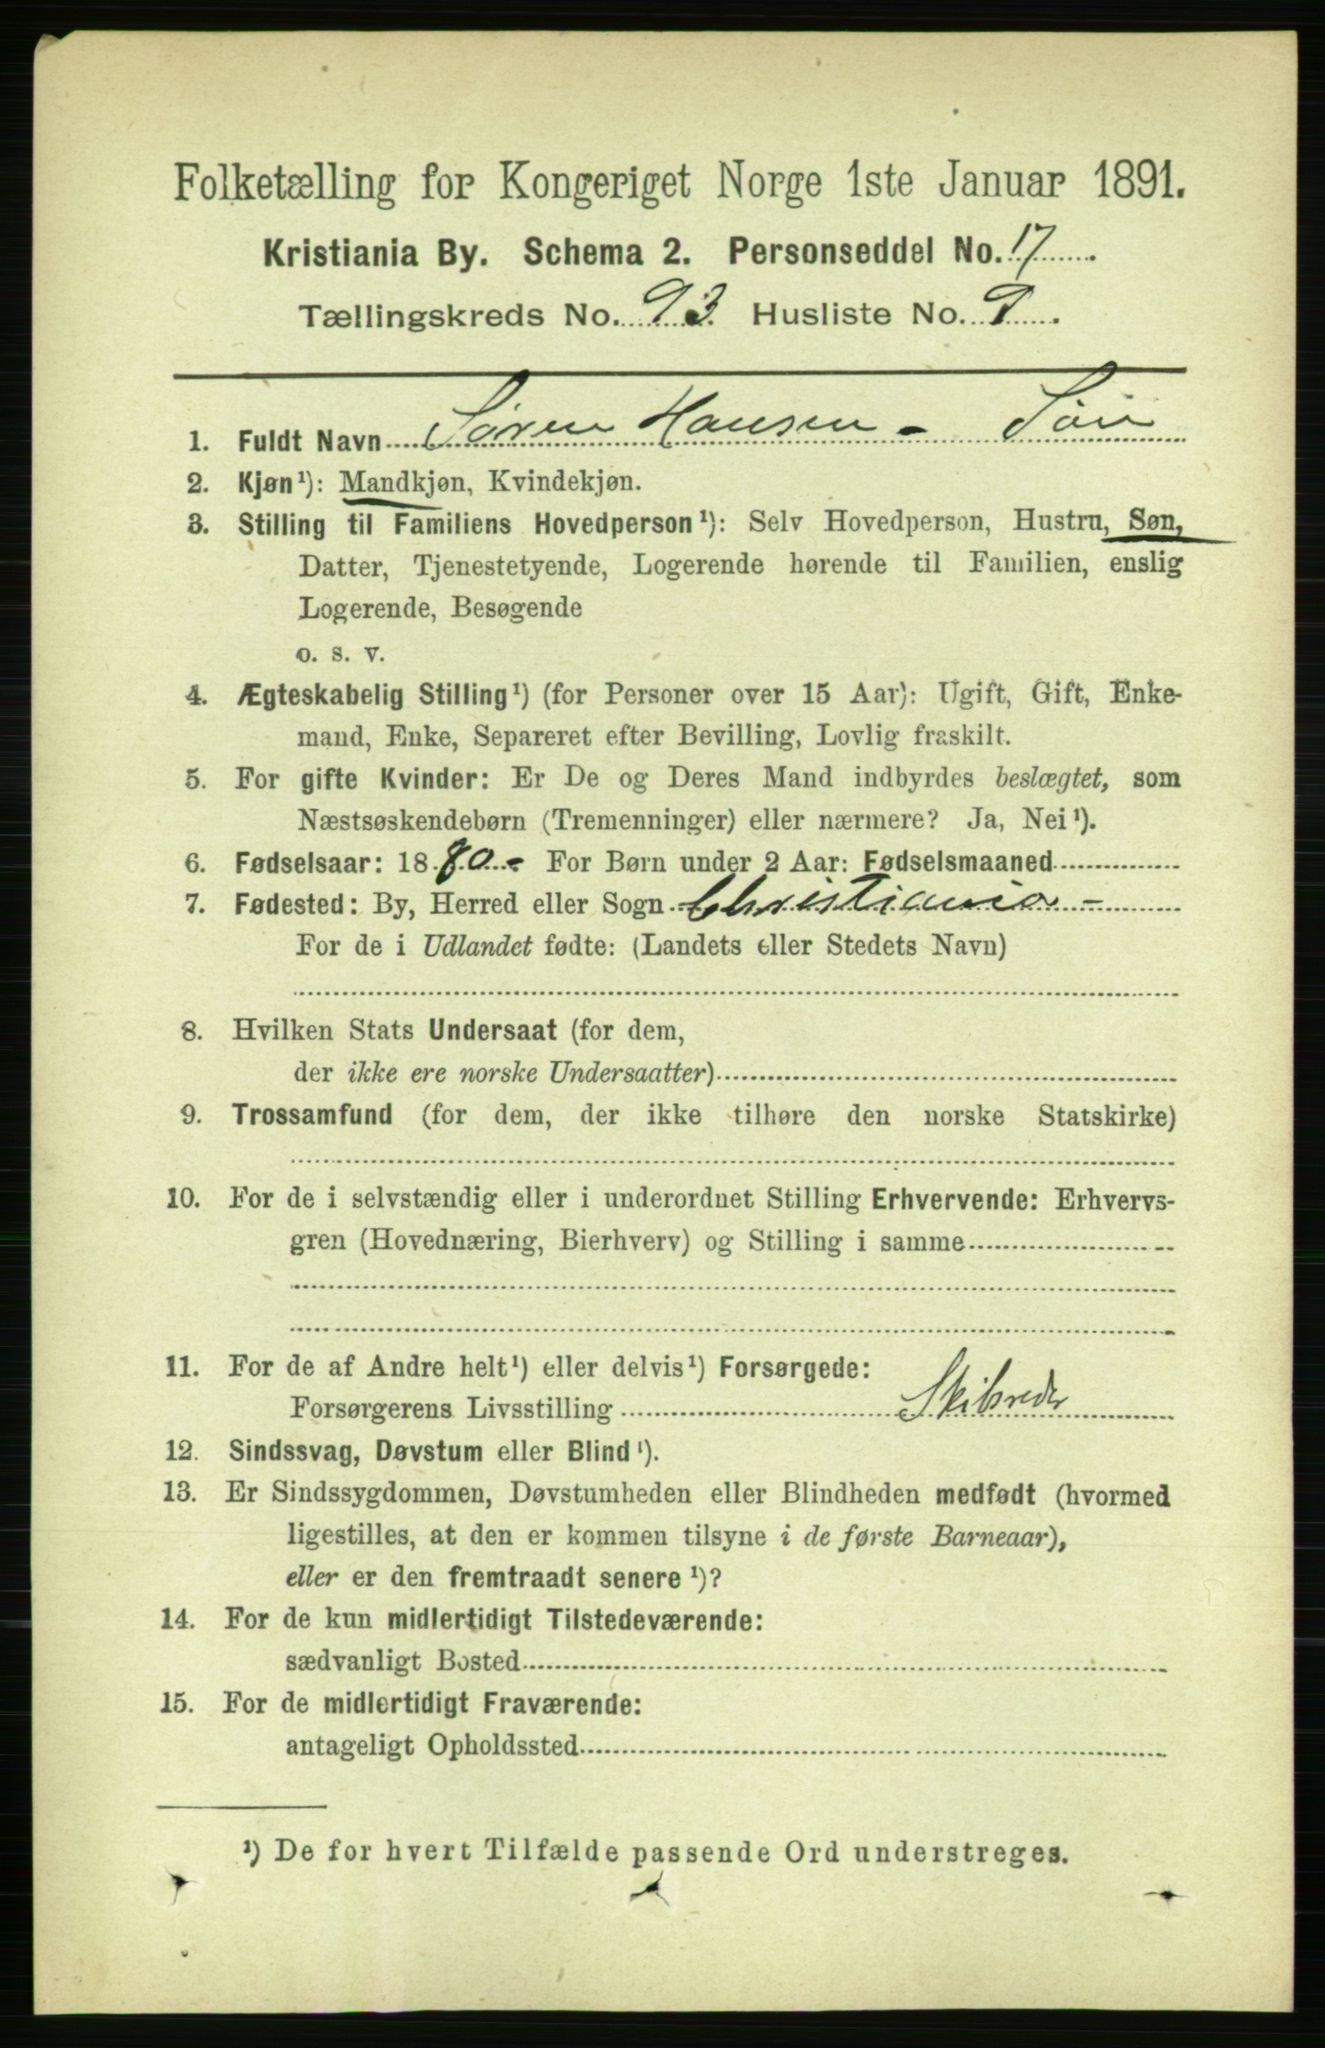 Folketælling for Kongeriget Norge 1ste Januar 1891.
Kristiania By. Schema 2. Personseddel No. 17
Tællingskreds No. 93 Husliste No. 9
1. Fuldt Navn Søren Hansen - Søn
2. Kjøn¹): Mandkjøn, Kvindekjøn.
3. Stilling til Familiens Hovedperson¹): Selv Hovedperson, Hustru, Søn,
Datter, Tjenestetyende, Logerende hørende til Familien, enslig
Logerende, Besøgende
o. s. v.
4. Ægteskabelig Stilling¹) (for Personer over 15 Aar): Ugift, Gift, Enke-
mand, Enke, Separeret efter Bevilling, Lovlig fraskilt.
5. For gifte Kvinder: Er De og Deres Mand indbyrdes beslægtet, som
Næstsøskendebørn (Tremenninger) eller nærmere? Ja, Nei¹).
6. Fødselsaar: 1880 - For Børn under 2 Aar: Fødselsmaaned
7. Fødested: By, Herred eller Sogn Christiania -
For de i Udlandet fødte: (Landets eller Stedets Navn)
8. Hvilken Stats Undersaat (for dem,
der ikke ere norske Undersaatter)
9. Trossamfund (for dem, der ikke tilhøre den norske Statskirke)
10. For de i selvstændig eller i underordnet Stilling Erhvervende: Erhvervs-
gren (Hovednæring, Bierhverv) og Stilling i samme
11. For de af Andre helt¹) eller delvis¹) Forsørgede:
Forsørgerens Livsstilling Skibsreder
12. Sindssvag, Døvstum eller Blind¹).
13. Er Sindssygdommen, Døvstumheden eller Blindheden medfødt (hvormed
ligestilles, at den er kommen tilsyne i de første Barneaar),
eller er den fremtraadt senere¹)?
14. For de kun midlertidigt Tilstedeværende:
sædvanligt Bosted
15. For de midlertidigt Fraværende:
antageligt Opholdssted
¹) De for hvert Tilfælde passende Ord understreges.